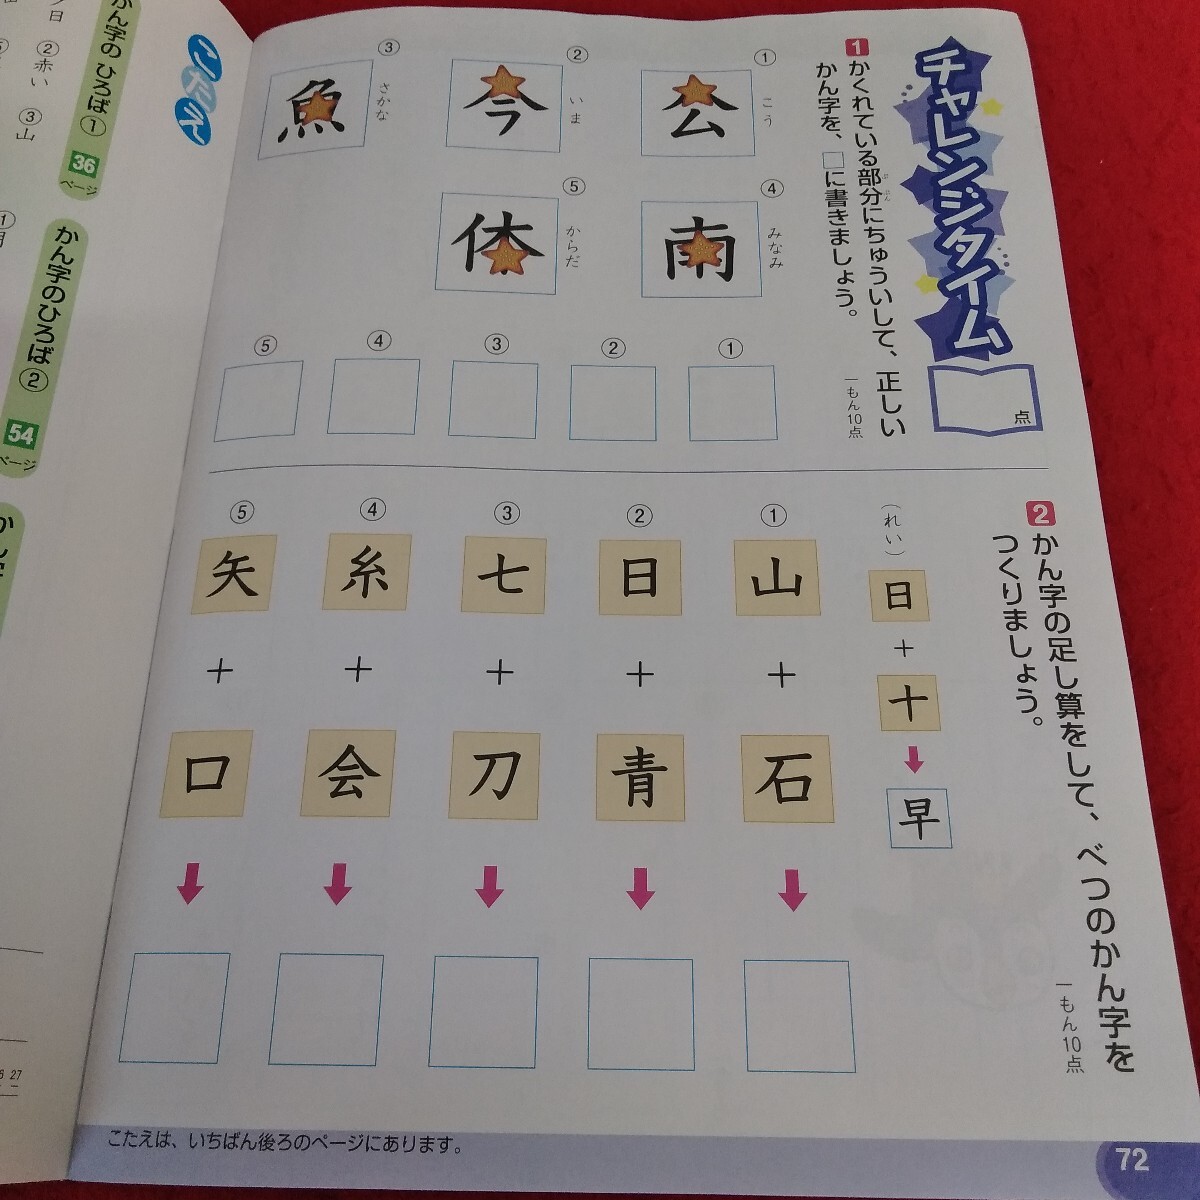 チャレンジタイム
点
1 かくれている部分にちゅういして、正しい
ぶぶん
かん字を、□に書きましょう。
一もん10点
①
公
こう
②
今
いま
③
魚
さかな
④
南
みなみ
⑤
体
からだ
①
②
③
④
⑤
2 かん字の足し算をして、べつのかん字を
つくりましょう。
一もん10点
(れい)
日
+
十
早
①
山
+
石
②
日
+
青
③
七
+
刀
④
糸
+
会
⑤
矢
+
口
こたえは、いちばん後ろのページにあります。
72
こたえ
かん字のひろば①
36
ページ
②赤い
③山
かん字のひろば②
54
ページ